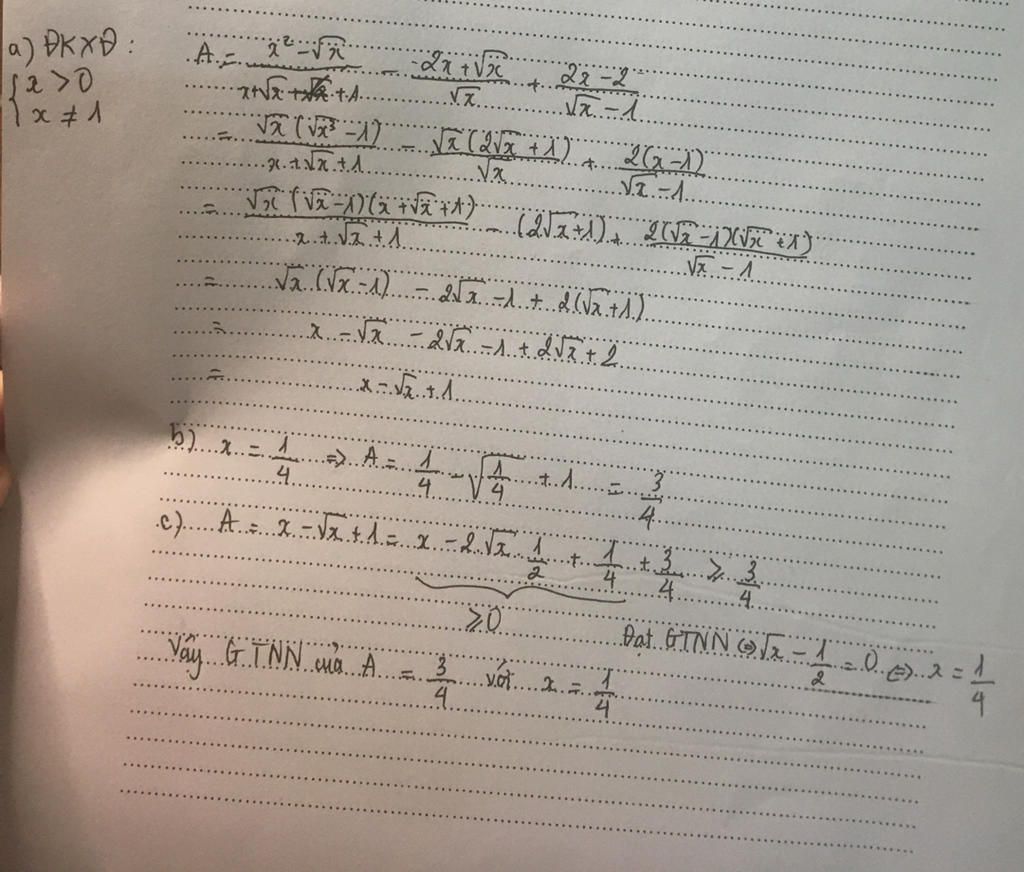 a) ĐKXĐ:
{ x > 0
x ≠ 1
A = (x² - √x)/(x + √x + 1) - (2x + √x)/√x + (2x - 2)/(√x - 1)
= √x(√x³ - 1)/(x + √x + 1) - √x(2√x + 1)/√x + 2(x - 1)/(√x - 1)
= √x(√x - 1)(x + √x + 1)/(x + √x + 1) - (2√x + 1) + 2(√x - 1)(√x + 1)/(√x - 1)
= √x(√x - 1) - 2√x - 1 + 2(√x + 1)
= x - √x - 2√x - 1 + 2√x + 2
= x - √x + 1
b) x = 1/4 => A = 1/4 - √(1/4) + 1 = 3/4
c) A = x - √x + 1 = x - 2.√x.1/2 + 1/4 + 3/4 ≥ 3/4
≥ 0
Đạt GTNN ⇔ √x - 1/2 = 0 ⇔ x = 1/4
Vậy GTNN của A = 3/4 với x = 1/4